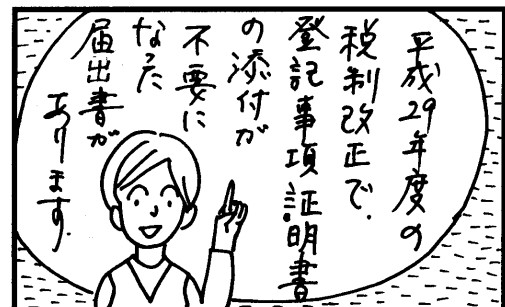 平成29年度の
税制改正で、
登記事項証明書
の添付が
不要に
なった
届出書が
あります。